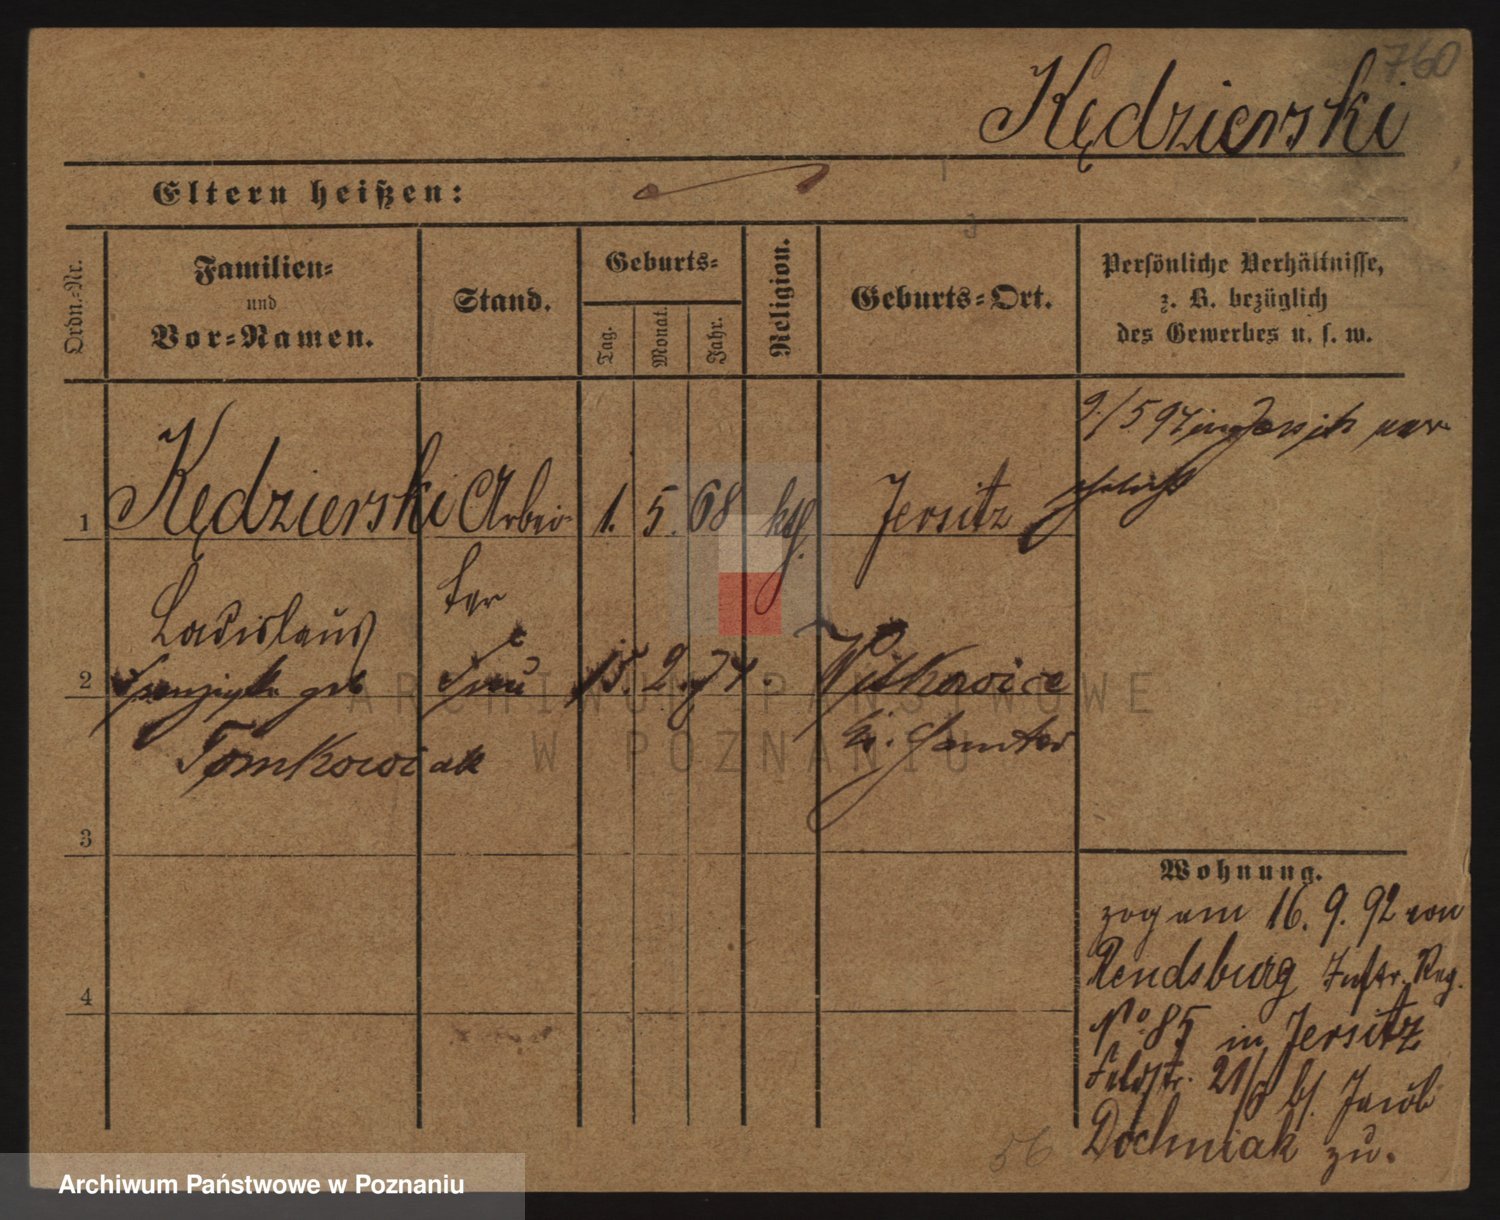 760
Kędzierski
Eltern heißen:
Ordn.-Nr.
Familien-
und
Vor-Namen.
Stand.
Geburts-
Tag.
Monat.
Jahr.
Religion.
Geburts-Ort.
Persönliche Verhältnisse,
z. B. bezüglich
des Gewerbes u. s. w.
9./5 97 in Jersitz ver-
ehelicht
1 Kędzierski Arbei- 1. 5. 68 ktl. Jersitz
Ladislaus ter
2 Franziska geb Frau 15. 2. 74. Witkowice
Tomkowiak Kr. Samter
3
4
Wohnung.
zog am 16. 9. 92 von
Rendsburg Inftr. Reg.
No 85 in Jersitz
Feldstr. 21/ b/. Jacob
Dochniak zu.
56
ARCHIWUM PAŃSTWOWE
W POZNANIU
Archiwum Państwowe w Poznaniu